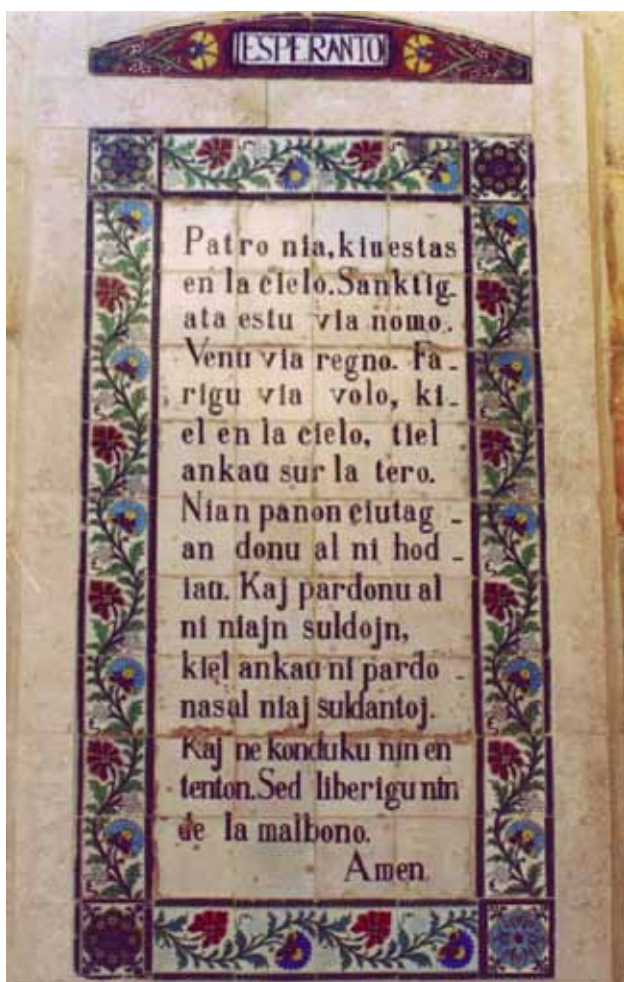 ESPERANTO
Patro nia, kiuestas
en la cielo. Sanktig-
ata estu via nomo.
Venu via regno. Fa-
rigu via volo, ki-
el en la cielo, tiel
ankau sur la tero.
Nian panon ciutag-
an donu al ni hod-
iau. Kaj pardonu al
ni niajn suldojn,
kiel ankau ni pardo-
nasal niaj suldantoj.
Kaj ne konduku nin en
tenton. Sed liberigu nin
de la malbono.
Amen.